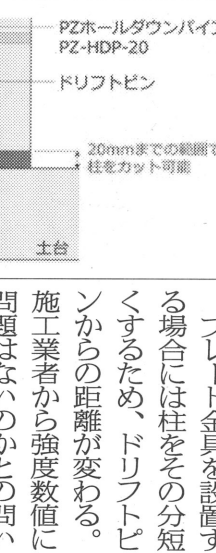 PZホールダウンパイプ
PZ-HDP-20
ドリフトピン
20mmまでの範囲で
柱をカット可能
土台
プレート金具を設置す
る場合には柱をその分短
くするため、ドリフトピ
ンからの距離が変わる。
施工業者から強度数値に
問題はないのかとの問い